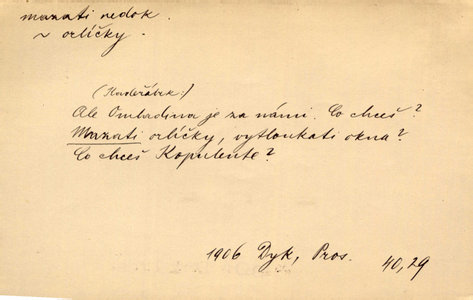 mazati nedok.
~ orlíčky.
Ale Omladina je za námi. Co chceš?
Mazati orlíčky, vytloukati okna?
Co chceš Kopulente?
1906 Dyk, Pros. 40,29